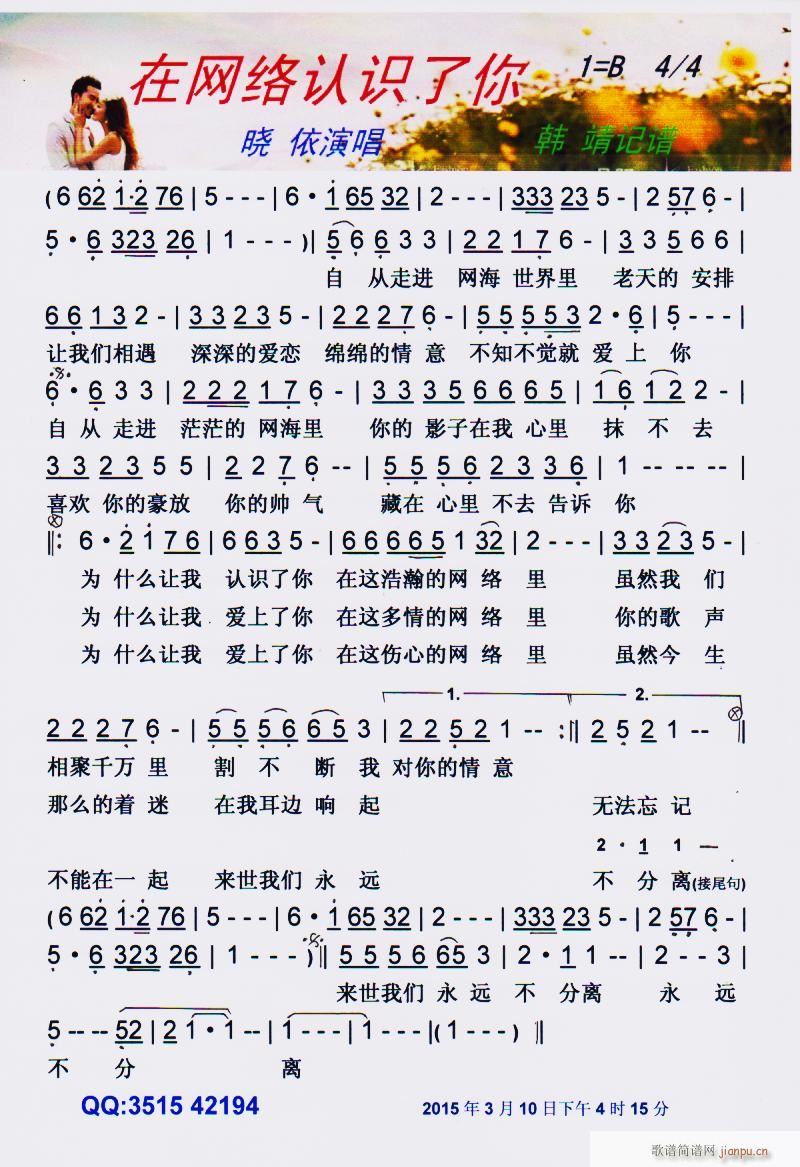 在网络认识了你 1=B 4/4
晓 依演唱 韩 靖记谱
( 6 62 1·2 76 | 5 - - - | 6 · 165 32 | 2 - - - | 333 23 5 - | 2 57 6 - |
5 · 6 323 26 | 1 - - - )‖ 5 6 6 3 3 | 2 2 1 7 6 - | 3 3 5 6 6 6 |
自 从走进 网海 世界里 老天的 安排
6 6 1 3 2 - | 3 3 2 3 5 - | 2 2 2 7 6 - | 5 5 5 5 3 2 · 6 | 5 - - - |
让我们相遇 深深的爱恋 绵绵的情 意 不知不觉就 爱 上 你
6 · 6 3 3 | 2 2 2 1 7 6 - | 3 3 3 5 6 6 6 5 | 1 6 1 2 2 - |
自 从 走进 茫茫的 网海里 你的 影子在我 心里 抹 不 去
3 3 2 3 5 5 | 2 2 7 6 - - | 5 5 5 6 2 3 3 6 | 1 - - - |
喜欢 你的豪放 你的帅 气 藏在 心里 不去 告诉 你
‖: 6 · 2 1 7 6 | 6 6 3 5 - | 6 6 6 6 5 1 32 | 2 - - - | 3 3 2 3 5 - |
为 什么让我 认识了你 在这浩瀚的网 络 里 虽然我 们
为 什么让我 爱上了你 在这多情的网 络 里 你的歌 声
为 什么让我 爱上了你 在这伤心的网 络 里 虽然今 生
1. 2.
2 2 2 7 6 - | 5 5 5 6 6 5 3 | 2 2 5 2 1 - - :‖ 2 5 2 1 - - ‖
相聚千万 里 割 不 断 我 对你的情 意
那么的着 迷 在我耳边 响 起 无法忘 记
2 · 1 1 —
不能在一 起 来世我们 永 远 不 分 离(接尾句)
( 6 62 1·2 76 | 5 - - - | 6 · 165 32 | 2 - - - | 333 23 5 - | 2 57 6 - |
5 · 6 323 26 | 1 - - - )‖ 5 5 5 6 65 3 | 2 · 1 1 - - | 2 - - 3 |
来世我们 永 远 不 分离 永 远
5 - - 52 | 2 1 · 1 - - | 1 - - - | 1 - - - | ( 1 - - - ) ‖
不 分 离
QQ:3515 42194 2015 年 3 月 10 日下午 4 时 15 分
歌谱简谱网 jianpu.cn